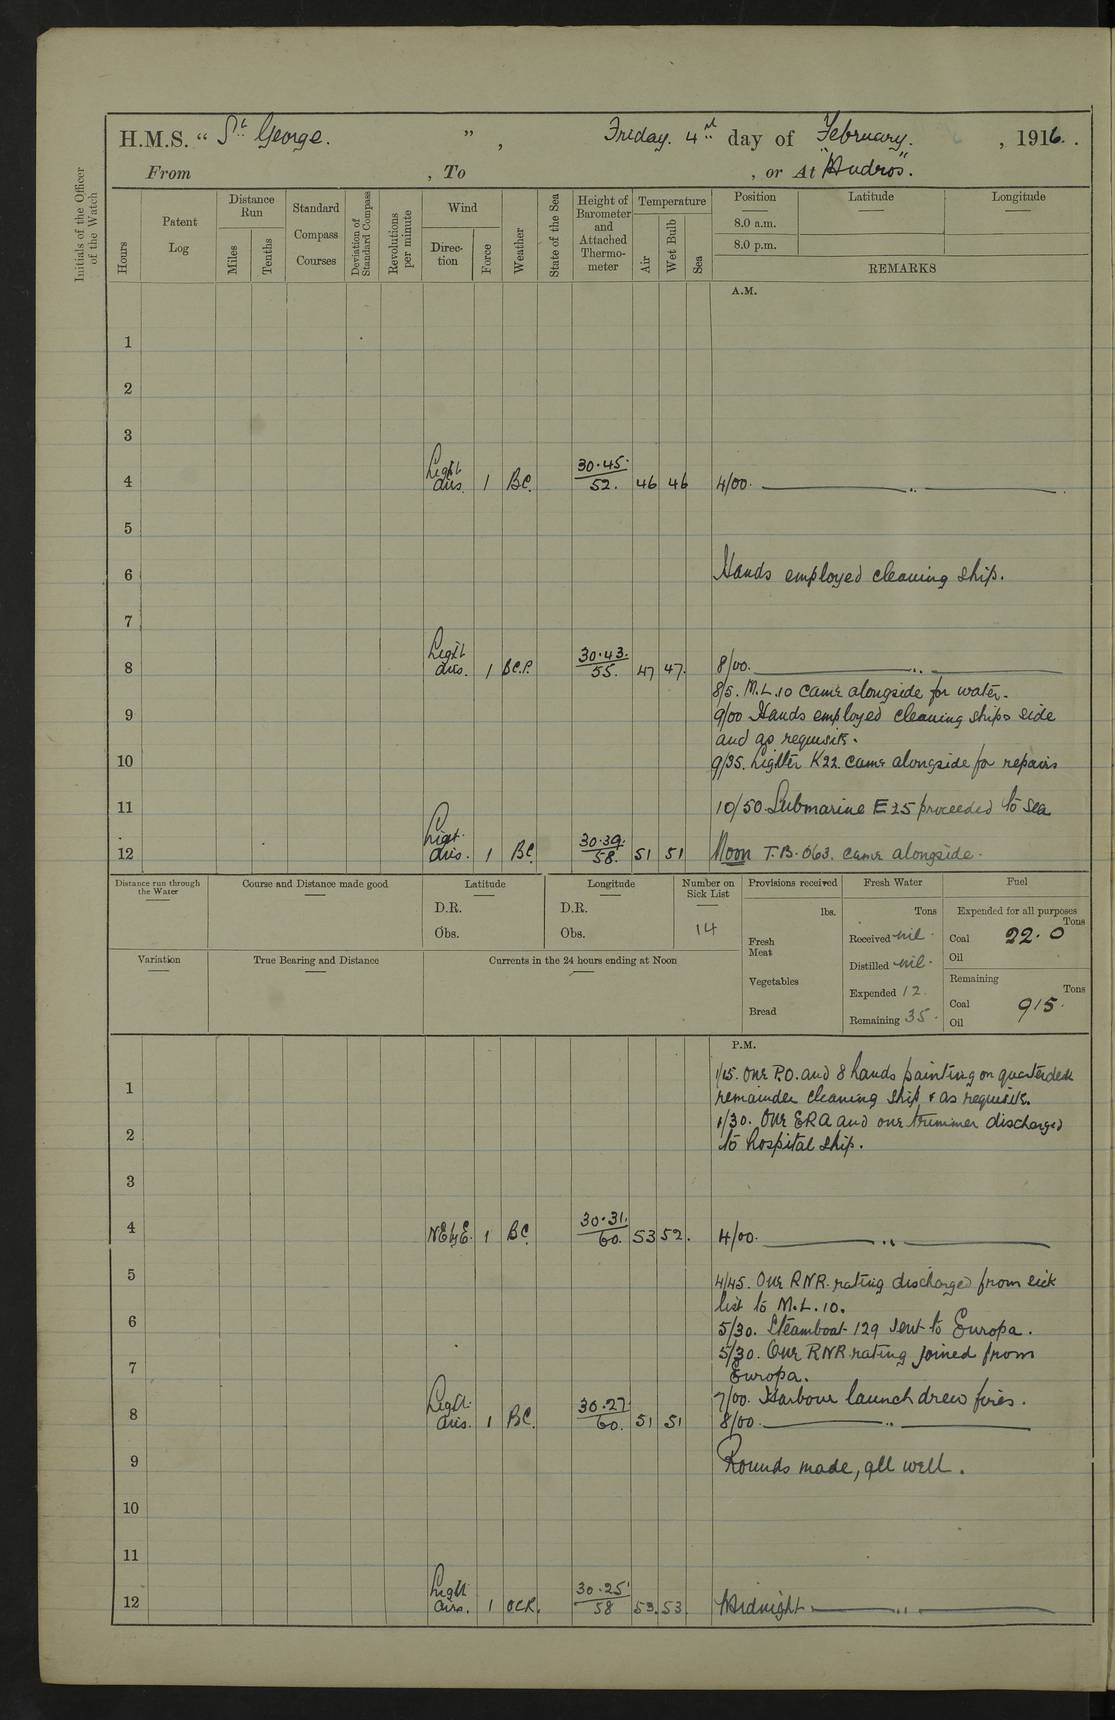 H.M.S. “ St George. ” , Friday. 4rd day of February. , 1916.
From , To , or At "Mudros".
Initials of the Officer of the Watch
Hours
Patent Log
Distance Run
Miles
Tenths
Standard Compass Courses
Deviation of Standard Compass
Revolutions per minute
Wind
Direction
Force
Weather
State of the Sea
Height of Barometer and Attached Thermometer
Temperature
Air
Wet Bulb
Sea
Position Latitude Longitude
8.0 a.m.
8.0 p.m.
REMARKS
A.M.
1
2
3
4 Light airs. 1 BC. 30.45. 52. 46 46 4/00. ——— „ ———
5
6 Hands employed cleaning ship.
7
8 Light airs. 1 BC.P. 30.43. 55. 47 47. 8/00. ——— „ ———
8/5. M.L.10 came alongside for water.
9 9/00 Hands employed cleaning ships side
and as requisite.
10 9/35. Lighter K22. came alongside for repairs
11 10/50. Submarine E25 proceeded to sea
12 Light. airs. 1 BC. 30.39. 58. 51 51 Noon T.B. 063. came alongside.
Distance run through the Water
Course and Distance made good
Latitude
D.R.
Obs.
Longitude
D.R.
Obs.
Number on Sick List
14
Provisions received
lbs.
Fresh Meat
Vegetables
Bread
Fresh Water
Tons
Received nil.
Distilled nil.
Expended 12.
Remaining 35.
Fuel
Expended for all purposes
Tons
Coal 22.0
Oil
Remaining
Tons
Coal 915.
Oil
Variation
True Bearing and Distance
Currents in the 24 hours ending at Noon
P.M.
1/15. One P.O. and 8 hands painting on quarterdeck
1 remainder cleaning ship & as requisite.
1/30. One ERA and one trimmer discharged
2 to hospital ship.
3
4 NEbyE. 1 BC. 30.31. 60. 53 52. 4/00. ——— „ ———
5 4/45. One RNR. rating discharged from sick
list to M.L. 10.
6 5/30. Steamboat 129 sent to Europa.
5/30. One RNR rating joined from
7 Europa.
7/00. Harbour launch drew fires.
8 Light. airs. 1 BC. 30.27. 60. 51 51 8/00. ——— „ ———
9 Rounds made, all well.
10
11
12 Light airs. 1 OCR. 30.25 58 53. 53. Midnight ——— „ ———